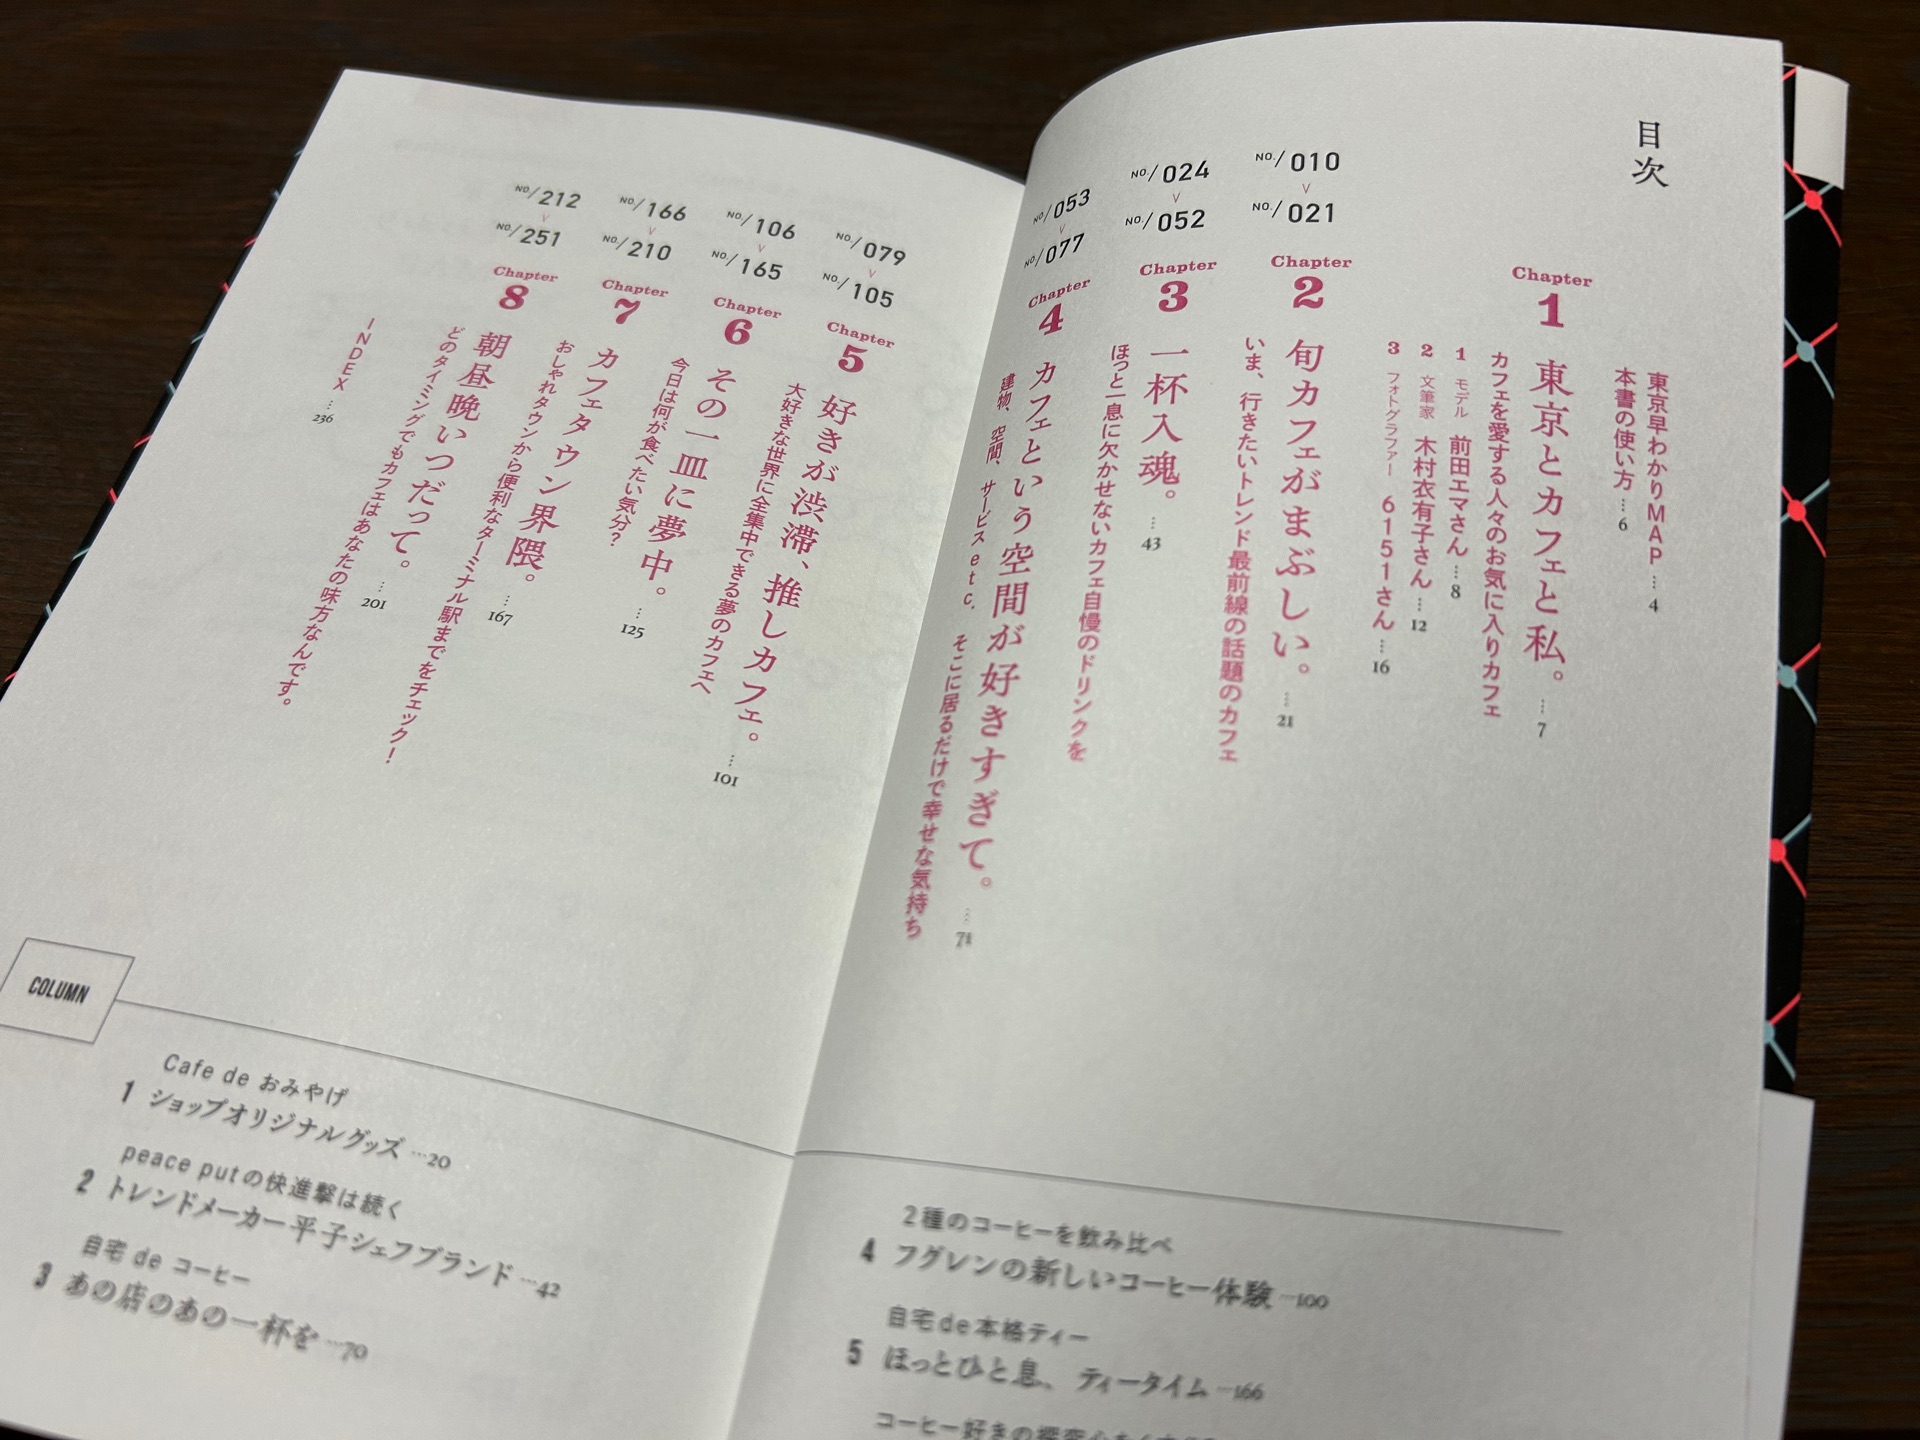 目次
東京早わかりMAP … 4
本書の使い方 … 6
Chapter
1
東京とカフェと私。 … 7
カフェを愛する人々のお気に入りカフェ
1 モデル 前田エマさん … 8
2 文筆家 木村衣有子さん … 12
3 フォトグラファー 6151さん … 16
NO./010
>
NO./021
Chapter
2
旬カフェがまぶしい。 … 21
いま、行きたいトレンド最前線の話題のカフェ
NO./024
>
NO./052
Chapter
3
一杯入魂。 … 43
ほっと一息に欠かせないカフェ自慢のドリンクを
NO./053
>
NO./077
Chapter
4
カフェという空間が好きすぎて。 … 71
建物、空間、サービスetc. そこに居るだけで幸せな気持ち
NO./079
>
NO./105
Chapter
5
好きが渋滞、推しカフェ。 … 101
大好きな世界に全集中できる夢のカフェへ
NO./106
>
NO./165
Chapter
6
その一皿に夢中。 … 125
今日は何が食べたい気分?
NO./166
>
NO./210
Chapter
7
カフェタウン界隈。 … 167
おしゃれタウンから便利なターミナル駅までをチェック!
NO./212
>
NO./251
Chapter
8
朝昼晩いつだって。 … 201
どのタイミングでもカフェはあなたの味方なんです。
INDEX … 236
COLUMN
Cafe de おみやげ
1 ショップオリジナルグッズ …20
peace putの快進撃は続く
2 トレンドメーカー平子シェフブランド …42
自宅 de コーヒー
3 あの店のあの一杯を …70
2種のコーヒーを飲み比べ
4 フグレンの新しいコーヒー体験 …100
自宅de本格ティー
5 ほっとひと息、ティータイム …166
コーヒー好きの探究心を